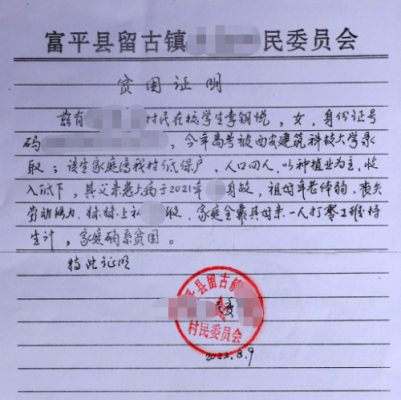 富平县留古镇 民委员会
贫困证明
兹有 村民在校学生李钢悦,女,身份证号
码 ,今年高考被西安建筑科技大学录
取;该生家庭系我村低保户,人口四人,以种植业为主,收
入低下,其父亲患大病于2021年 身故,祖母年老体弱,丧失
劳动能力,妹妹上 ,家庭全靠其母亲一人打零工维持
生计,家庭确系贫困。
特此证明
富平县留古镇
村民委员会
2022.8.9